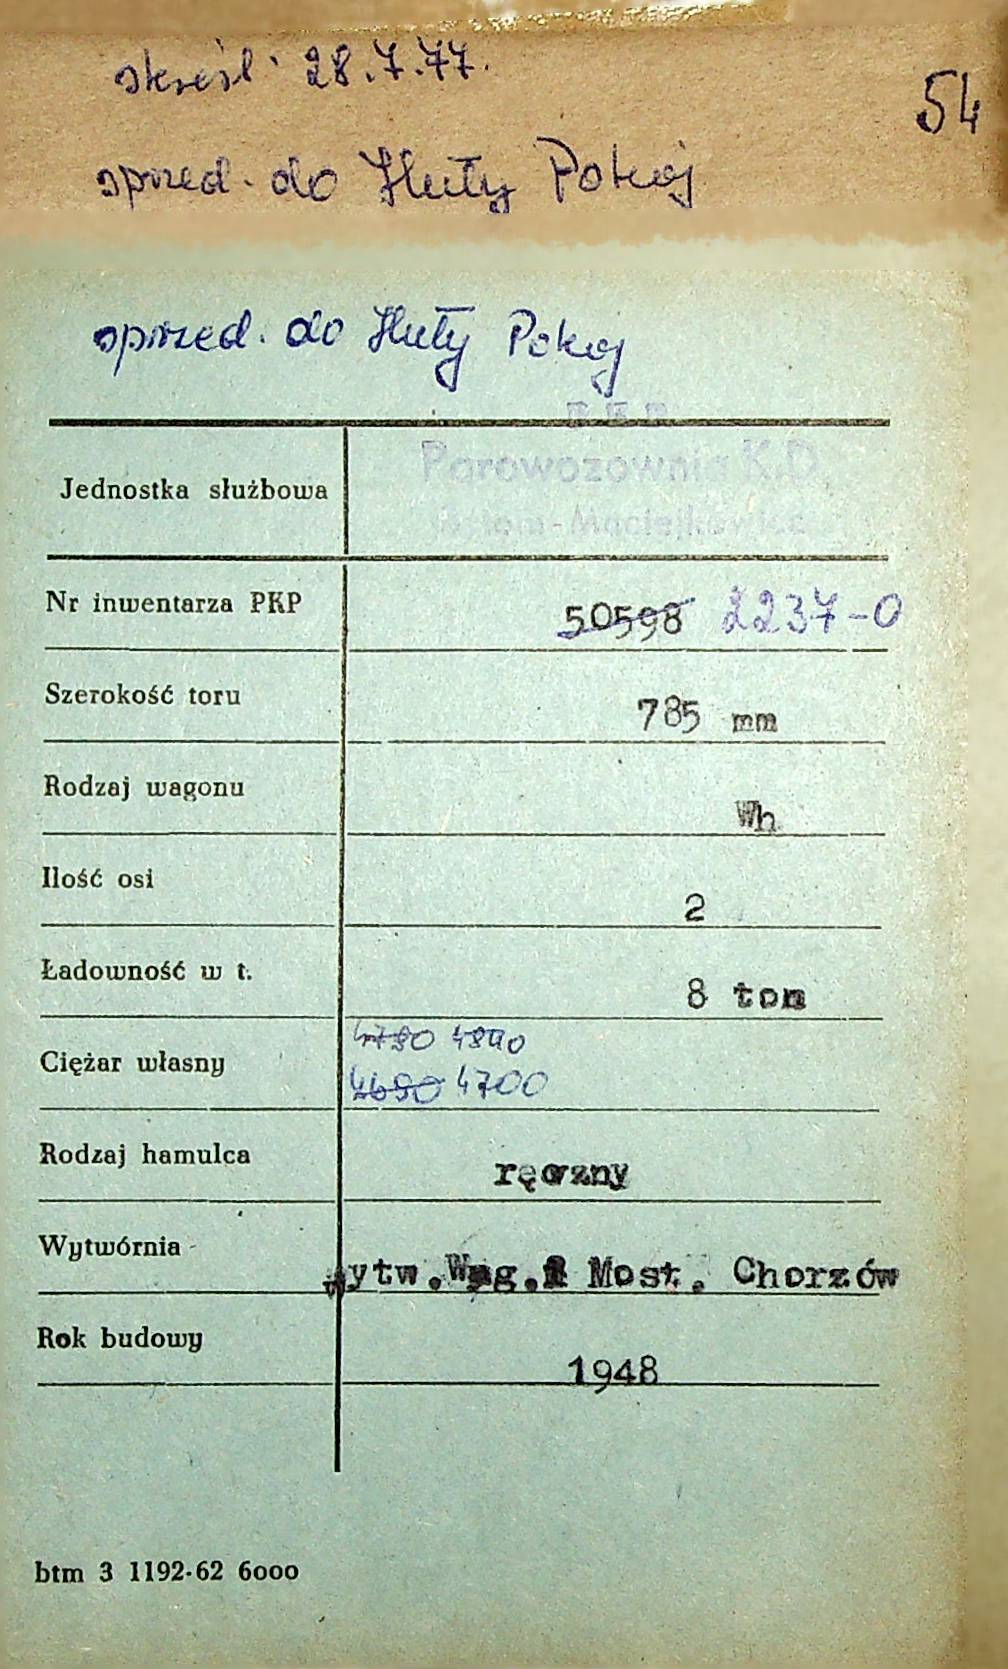 skreśl. 28.7.77.
54
sprzed. do Huty Pokój
sprzed. do Huty Pokój
P K P
Jednostka służbowa Parowozownia K.D.
Bytom-Maciejkowice
Nr inwentarza PKP 50598 2237-0
Szerokość toru 785 mm
Rodzaj wagonu Wh
Ilość osi 2
Ładowność w t. 8 ton
4780 4840
Ciężar własny 4690 4700
Rodzaj hamulca ręczny
Wytwórnia Wytw.Wag.i Most. Chorzów
Rok budowy 1948
btm 3 1192-62 6000